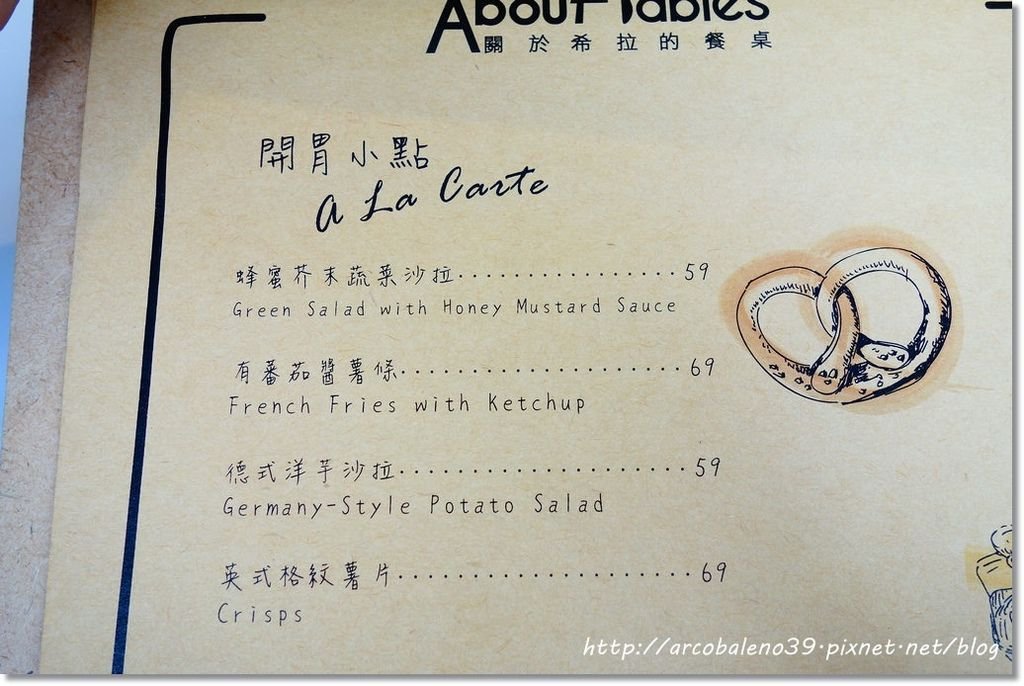 About Tables
關於希拉的餐桌
開胃小點
A La Carte
蜂蜜芥末蔬菜沙拉·················59
Green Salad with Honey Mustard Sauce
有蕃茄醬薯條······················69
French Fries with Ketchup
德式洋芋沙拉······················59
Germany-Style Potato Salad
英式格紋薯片······················69
Crisps
http://arcobaleno39.pixnet.net/blog